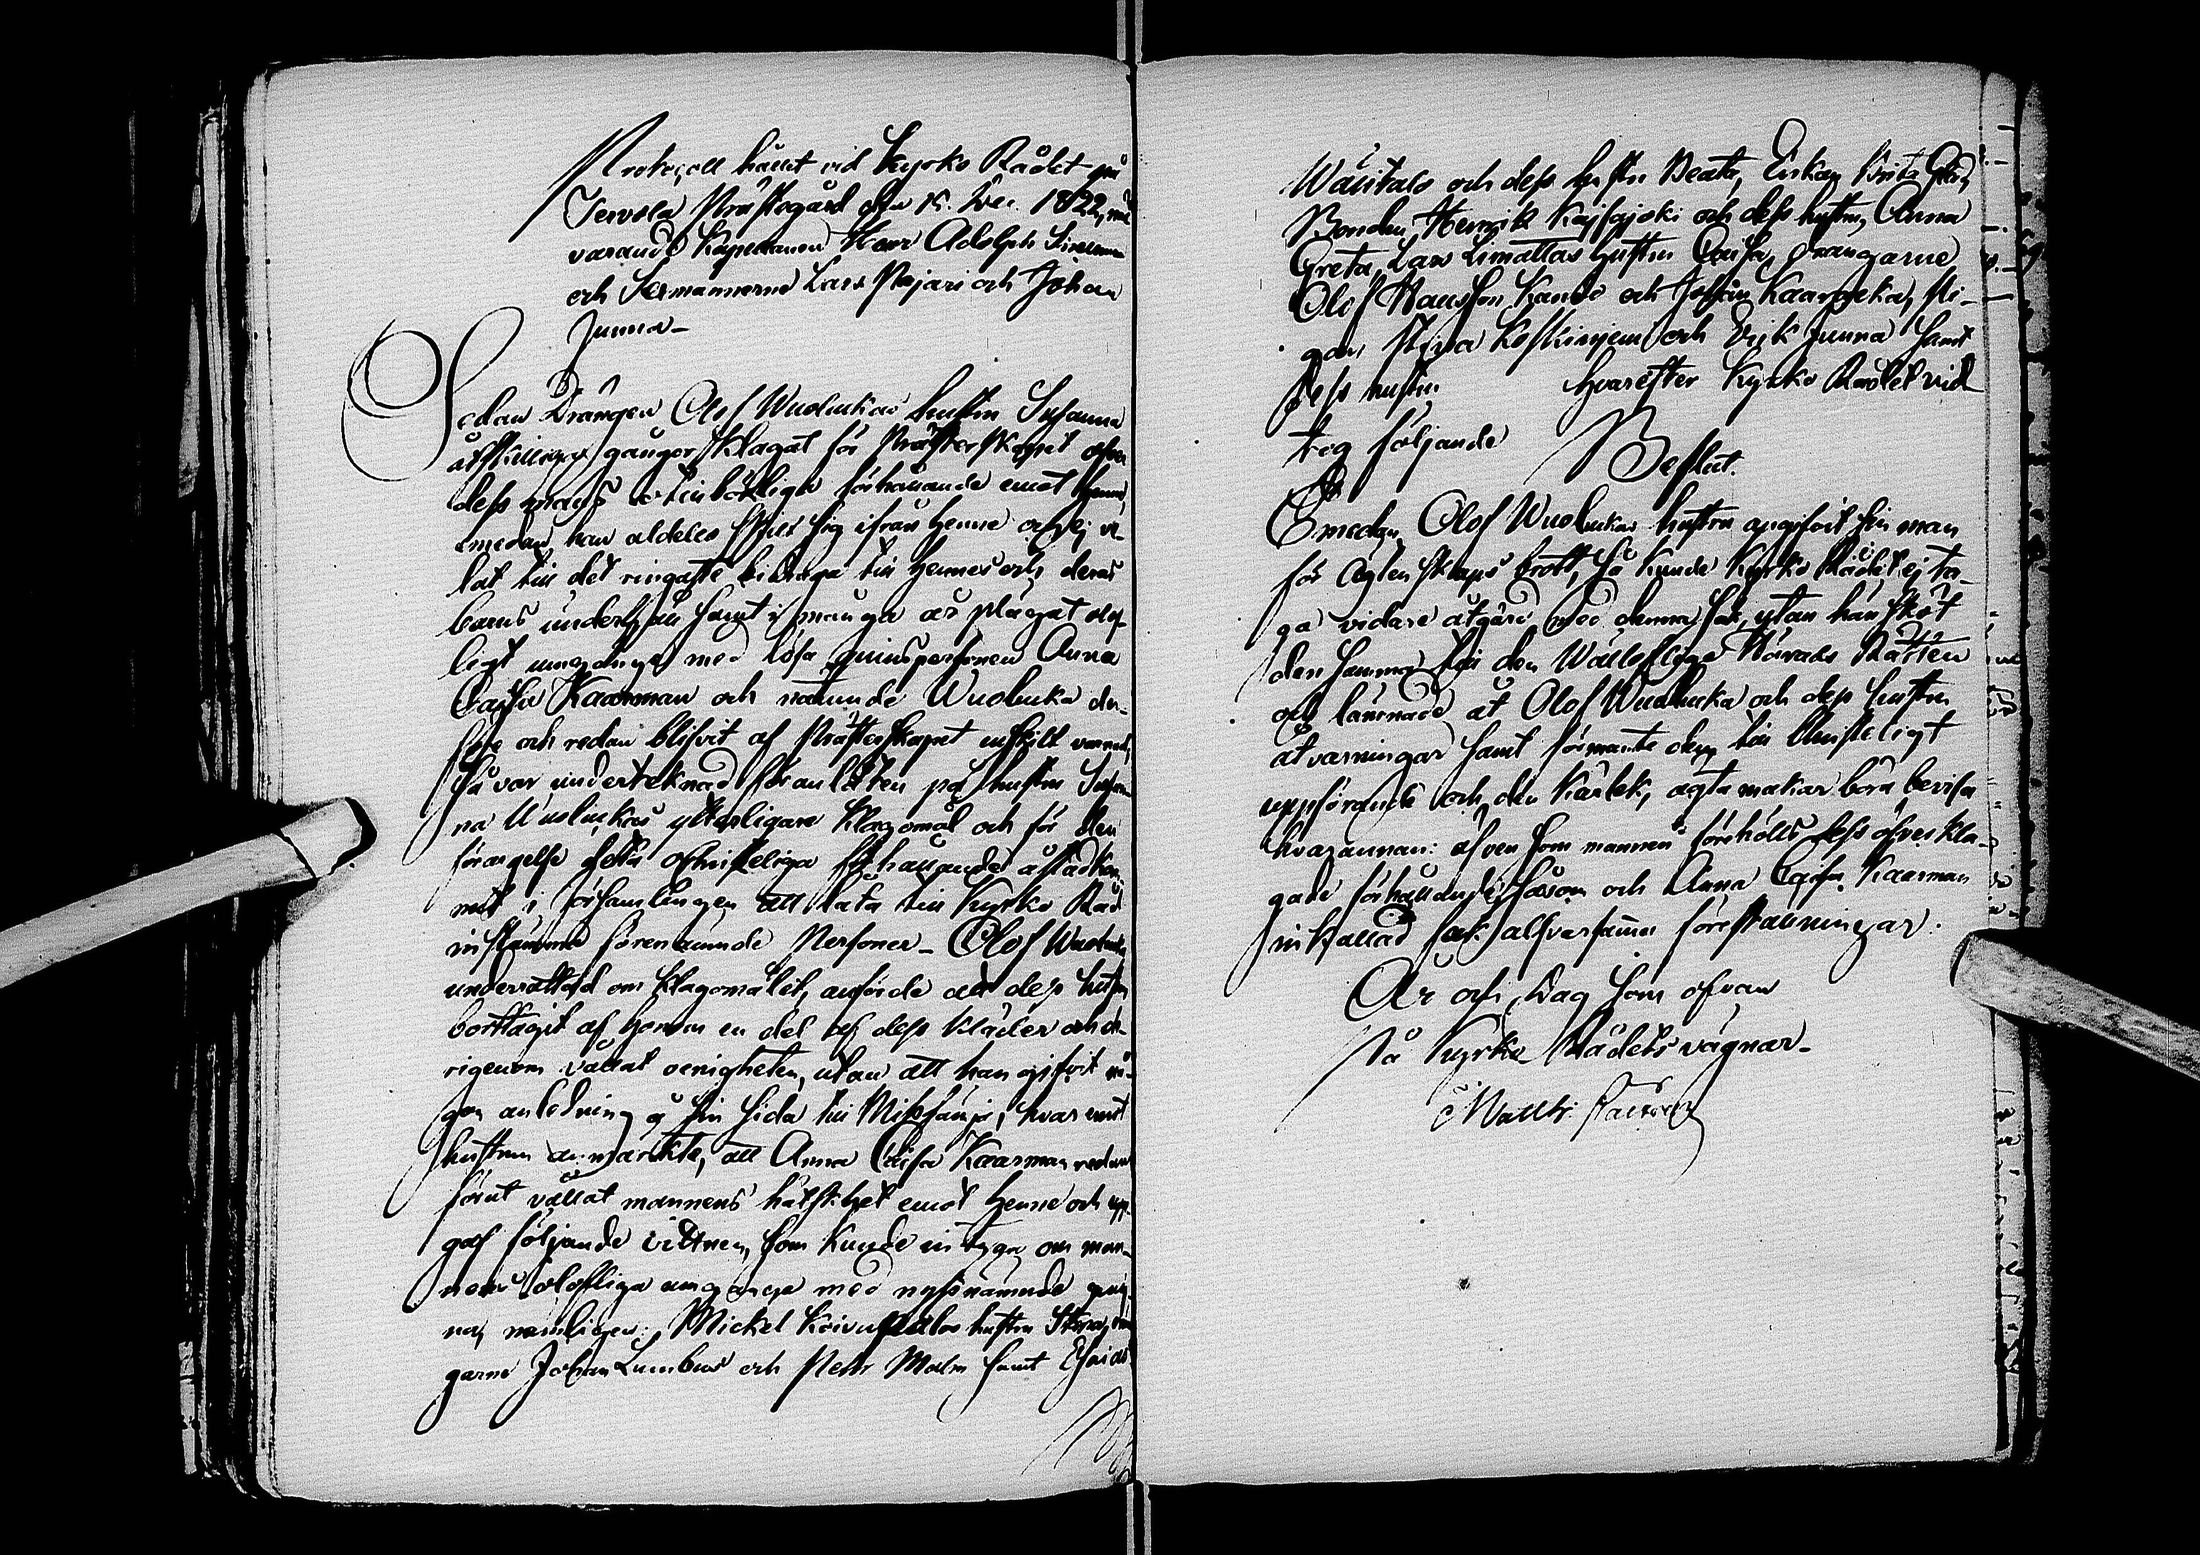 Protocoll hållit vid Kyrko Rådet på
Tervola Prästegård den 15. Dec. 1822, när
varande Kapellanen Herr Adolph
och Sexmännerne Lars Pajari och Johan
Junna –
Sedan Drängen Olof Wuolukas hustru Susanna
åtskillige gånger klagat för Prästerskapet öfver
dess mans otilbörliga förhållande emot henne,
emedan han aldeles skiljt sig ifrån henne och ej ve-
lat till det ringaste bidraga till hennes och deras
barns underhåll samt i många år plägat olof-
ligt umgänge med lösa qvinspersonen Anna
Caisa Kaarman och nämnde Wuoluka der-
före och redan blifvit af Prästerskapet enskilt varnad,
så var undertecknad föranlåten på hustru Susan-
na Wuolukas ytterligare klagomål och för den
förargelse detta ochristeliga förhållande åstadkom-
mit i församlingen att låta till Kyrko Råd
instämma förenämnde Personer – Olof Wuoluka
underrättad om klagomålet, anförde att dess hustru
borttagit af honom en del af dess kläder och de-
rigenom vållat oenigheten, utan att han gifvit nå-
gon anledning å sin sida till Misshälligh, hvaremot
hustrun anmärkte, att Anna Caisa Kaarman redan
förut vållat mannens hätskhet emot henne och upp-
gaf följande vittnen, som kunde intyga om man-
nens olofliga umgänge med nyssnämnde qvin-
na, nemligen: Mickel Koivupalos hustru Stina, drän-
garne Johan Lumbus och Petter Malm samt Esaias
Wälitalo och dess hustru Beata, Enkan Brita
Bonden Henrik Kaisajoki och dess hustru, Anna
Greta, Lars Limattas hustru Caisa, drängarne
Olof Hansson Kando och Johan Kaarakka, Pi-
gan Stina Koskinjemi och Erik Junna samt
dess hustru hvarefter Kyrko Rådet vid
tog följande
Beslut.
Emedan Olof Wuolukas hustru angifvit sin man
för Ägtenskaps brott, så kunde Kyrko Rådet ej ta-
ga vidare åtgärd med denna sak, utan hänsköt
densamma till den Wällofliga Härads Rätten
och lämnade åt Olof Wuoluka och dess hustru
åtvarningar samt förmante dem till Christeligt
uppförande och den kärlek, ägta makar böra bevisa
hvarannan: äfven som mannen förehölls dess öfverkla-
gade förhållande såsom och Anna Caisa Kaarman
inkallad fick alfvarsamma föreställningar.
År och Dag som ofvan
På Kyrko Rådets vägnar –
Matth: